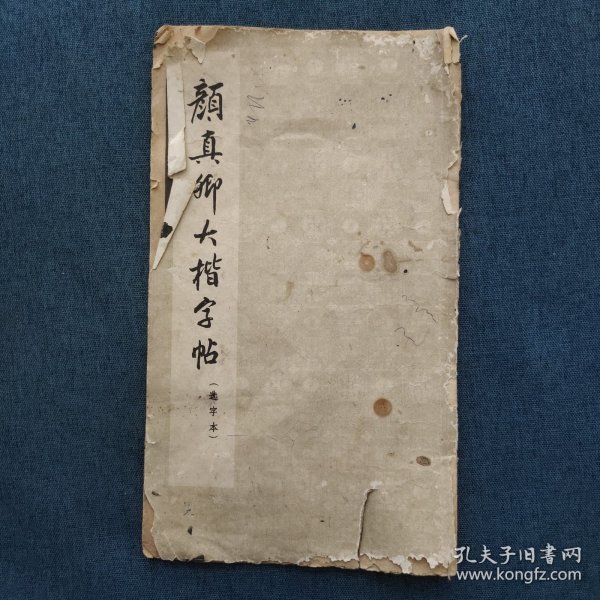 颜真卿大楷字帖
（选字本）
孔夫子旧书网
www.kongfz.com